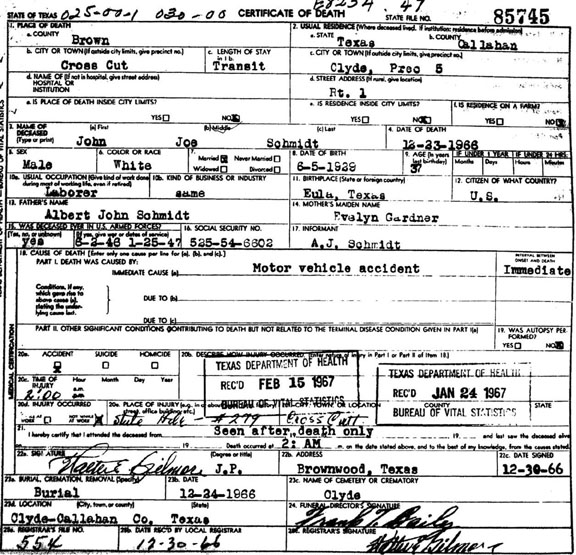 STATE OF TEXAS 025-00-1 030-00 CERTIFICATE OF DEATH STATE FILE NO. 85745
1. PLACE OF DEATH
a. COUNTY Brown
2. USUAL RESIDENCE (Where deceased lived. If institution: residence before admission)
a. STATE Texas b. COUNTY Callahan
b. CITY OR TOWN (If outside city limits, give precinct no.) Cross Cut
c. LENGTH OF STAY in 1 b. Transit
c. CITY OR TOWN (If outside city limits, give precinct no.) Clyde, Prec 5
d. NAME OF (If not in hospital, give street address) HOSPITAL OR INSTITUTION
d. STREET ADDRESS (If rural, give location) Rt. 1
e. IS PLACE OF DEATH INSIDE CITY LIMITS? YES NO
e. IS RESIDENCE INSIDE CITY LIMITS? YES NO
f. IS RESIDENCE ON A FARM? YES NO
3. NAME OF DECEASED (Type or print) (a) First John (b) Middle Joe (c) Last Schmidt
4. DATE OF DEATH 12-23-1966
5. SEX Male
6. COLOR OR RACE White
7. Married Never Married Widowed Divorced
8. DATE OF BIRTH 6-5-1929
9. AGE (In years last birthday) 37
IF UNDER 1 YEAR Months Days
IF UNDER 24 HRS. Hours Min.
10a. USUAL OCCUPATION (Give kind of work done during most of working life, even if retired) Laborer
10b. KIND OF BUSINESS OR INDUSTRY same
11. BIRTHPLACE (State or foreign country) Eula, Texas
12. CITIZEN OF WHAT COUNTRY? U.S.
13. FATHER'S NAME Albert John Schmidt
14. MOTHER'S MAIDEN NAME Evelyn Gardner
15. WAS DECEASED EVER IN U.S. ARMED FORCES? (Yes, no, or unknown) (If yes, give war or dates of service) yes 8-2-46 1-25-47
16. SOCIAL SECURITY NO. 525-54-6602
17. INFORMANT A.J. Schmidt
18. CAUSE OF DEATH [Enter only one cause per line for (a), (b), and (c).]
INTERVAL BETWEEN ONSET AND DEATH
PART I. DEATH WAS CAUSED BY:
IMMEDIATE CAUSE (a) Motor vehicle accident Immediate
Conditions, if any, which gave rise to above cause (a), stating the underlying cause last.
DUE TO (b)
DUE TO (c)
PART II. OTHER SIGNIFICANT CONDITIONS CONTRIBUTING TO DEATH BUT NOT RELATED TO THE TERMINAL DISEASE CONDITION GIVEN IN PART I(a)
19. WAS AUTOPSY PERFORMED? YES NO
MEDICAL CERTIFICATION
20a. ACCIDENT SUICIDE HOMICIDE
20b. DESCRIBE HOW INJURY OCCURRED. (Enter nature of injury in Part I or Part II of Item 18.)
TEXAS DEPARTMENT OF HEALTH
REC'D FEB 15 1967
BUREAU OF VITAL STATISTICS
TEXAS DEPARTMENT OF HEALTH
REC'D JAN 24 1967
BUREAU OF VITAL STATISTICS
20c. TIME OF INJURY Hour Month Day Year 2:00
20d. INJURY OCCURRED
20e. PLACE OF INJURY State #279 Cross Cut
LOCATION COUNTY STATE
21. I hereby certify that I attended the deceased from Seen after death only 19 and last saw the deceased alive
Death occurred at 2: AM m. on the date stated above, and to the best of my knowledge, from the causes stated.
22a. SIGNATURE (Degree or title) J.P.
22b. ADDRESS Brownwood, Texas
22c. DATE SIGNED 12-30-66
23a. BURIAL, CREMATION, REMOVAL (Specify) Burial
23b. DATE 12-24-1966
23c. NAME OF CEMETERY OR CREMATORY Clyde
23d. LOCATION (City, town, or county) (State) Clyde-Callahan Co. Texas
24. FUNERAL DIRECTOR'S SIGNATURE
25a. REGISTRAR'S FILE NO. 554
25b. DATE REC'D BY LOCAL REGISTRAR 12-30-66
25c. REGISTRAR'S SIGNATURE